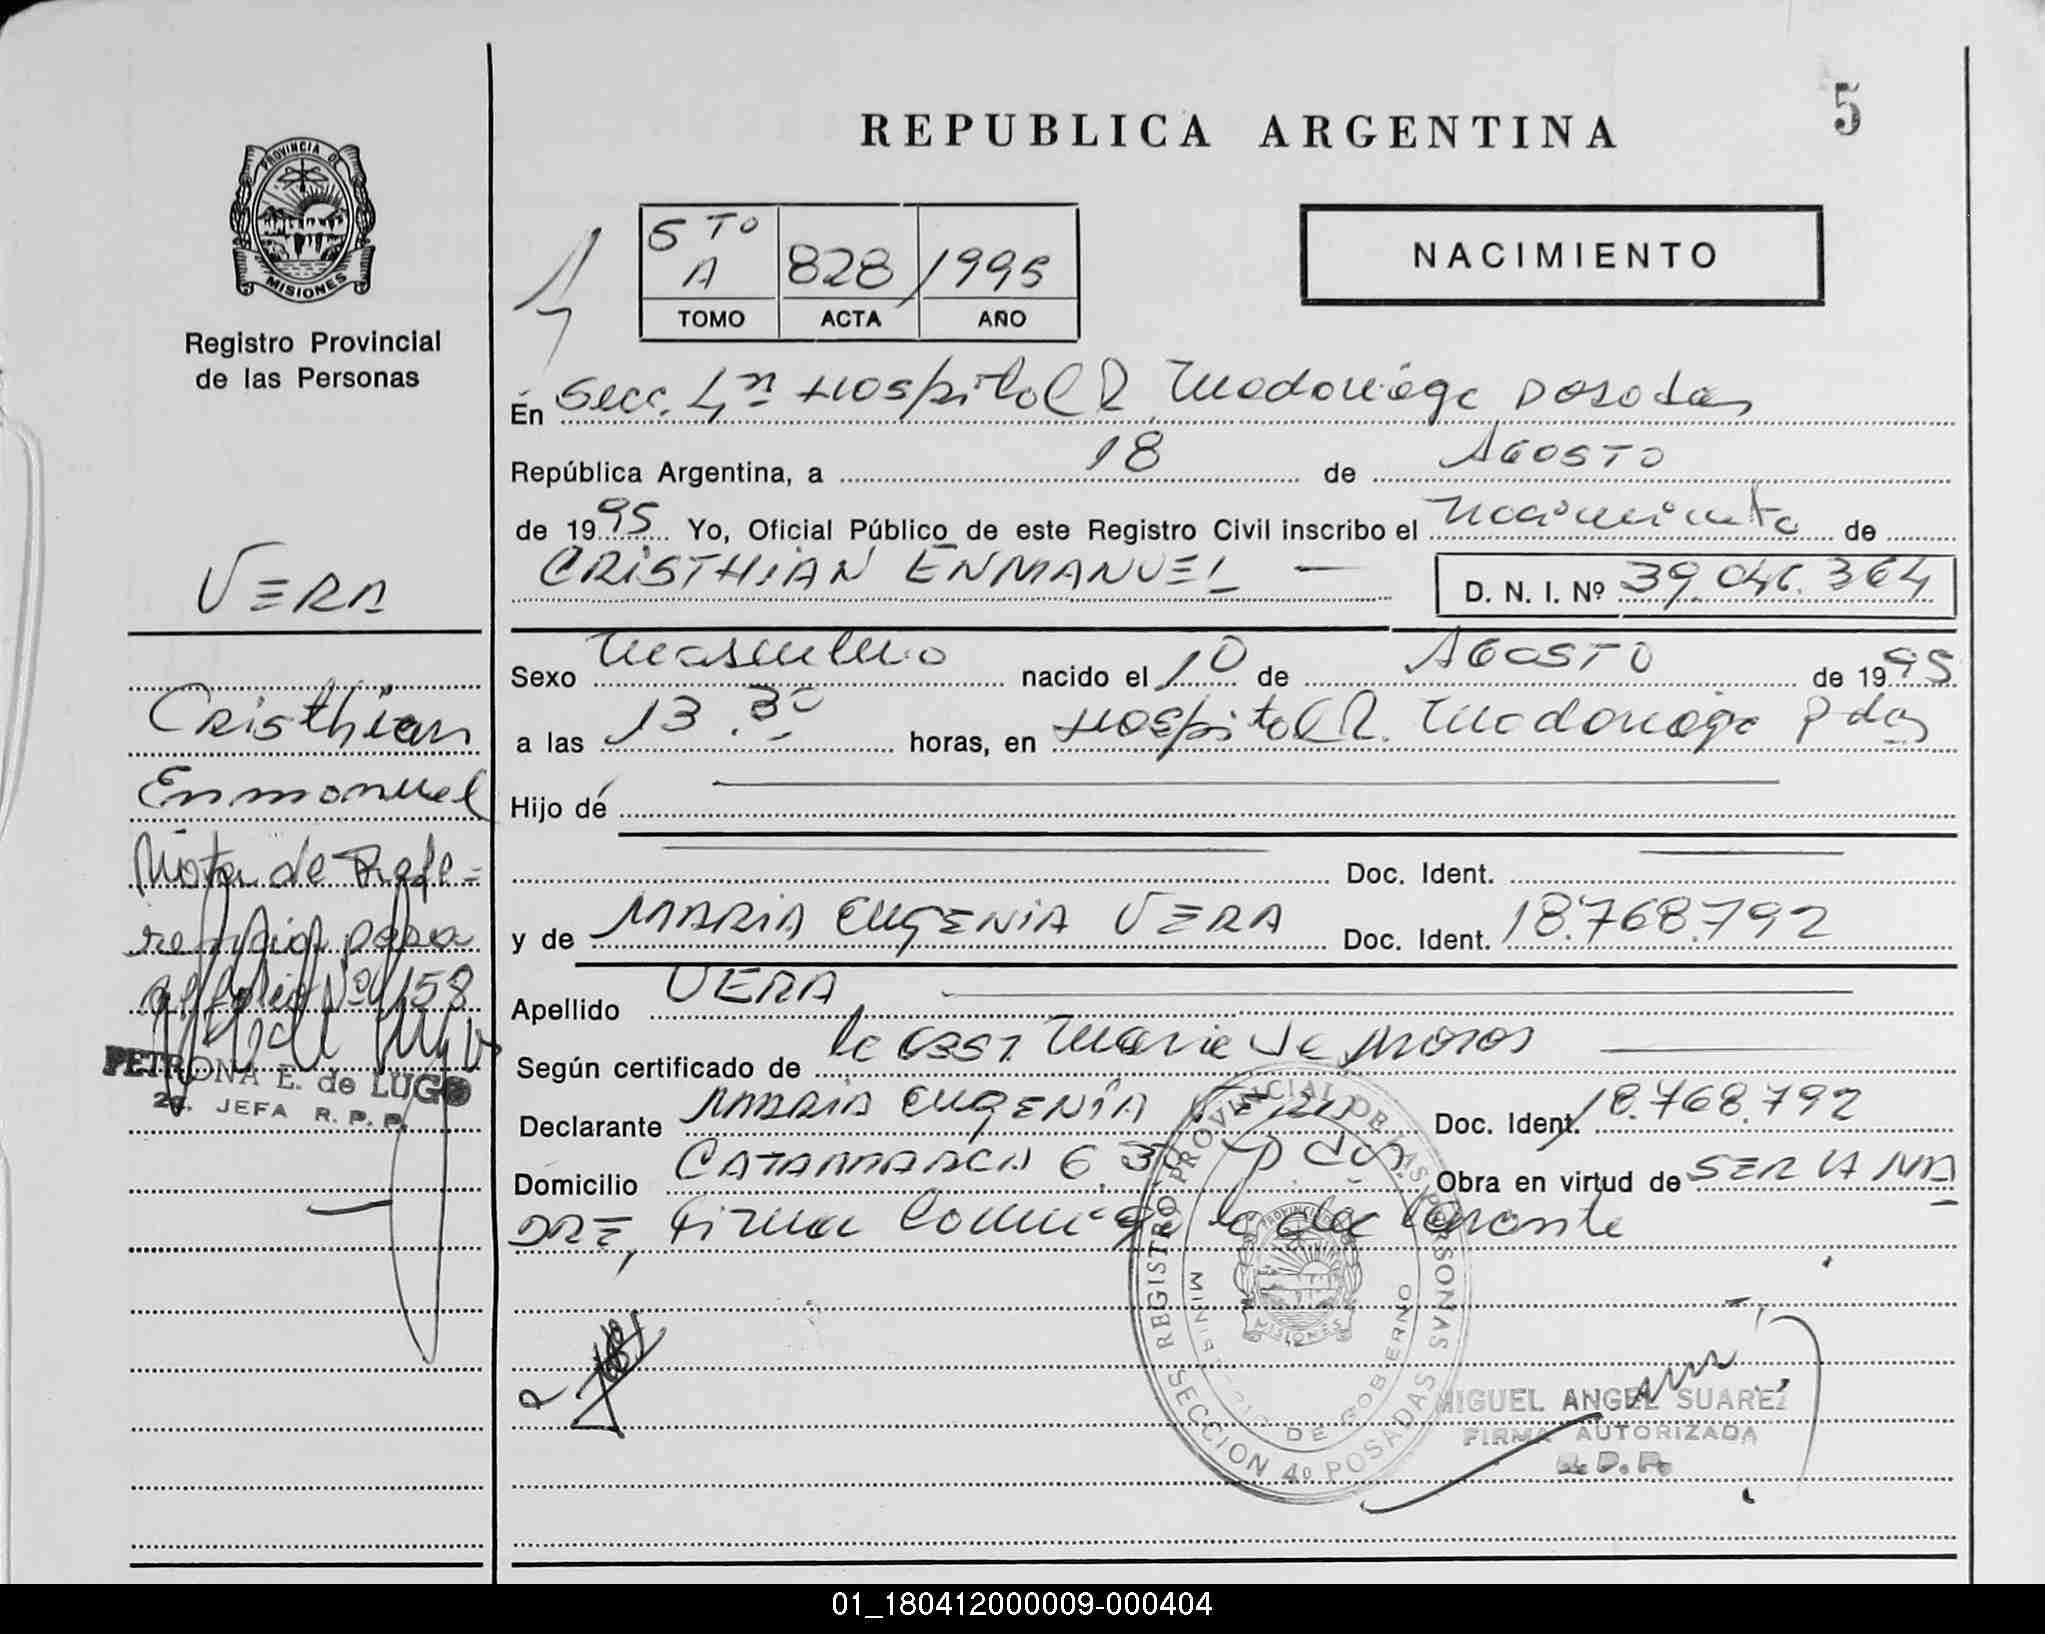 REPUBLICA ARGENTINA
5
PROVINCIA DE
MISIONES
Registro Provincial
de las Personas
5 TO
A
828
1995
TOMO
ACTA
AÑO
NACIMIENTO
En Secc. 4ta Hospital R Madariaga Posadas
República Argentina, a 18 de AGOSTO
de 1995 Yo, Oficial Público de este Registro Civil inscribo el nacimiento de
CRISTHIAN ENMANUEL
D. N. I. Nº 39.046.364
Sexo Masculino nacido el 10 de AGOSTO de 1995
a las 13.30 horas, en Hospital R. Madariaga Pdas
Hijo de
Doc. Ident.
y de MARIA EUGENIA VERA Doc. Ident. 18.768.792
Apellido VERA
Según certificado de la Obst. Maria de
Declarante MARIA EUGENIA VERA Doc. Ident. 18.768.792
Domicilio CATAMARCA 63 Pdas Obra en virtud de SER LA MA
DRE, firma conmigo la declarante
VERA
Cristhian
Enmanuel
Nota de Refe=
rencia para
Nº 158
PETRONA E. de LUGO
2a. JEFA R. P. P.
REGISTRO PROVINCIAL DE LAS PERSONAS
MINISTERIO DE GOBIERNO
PROVINCIA DE
MISIONES
SECCION 4º POSADAS
MIGUEL ANGEL SUAREZ
FIRMA AUTORIZADA
R. P. P.
01_180412000009-000404